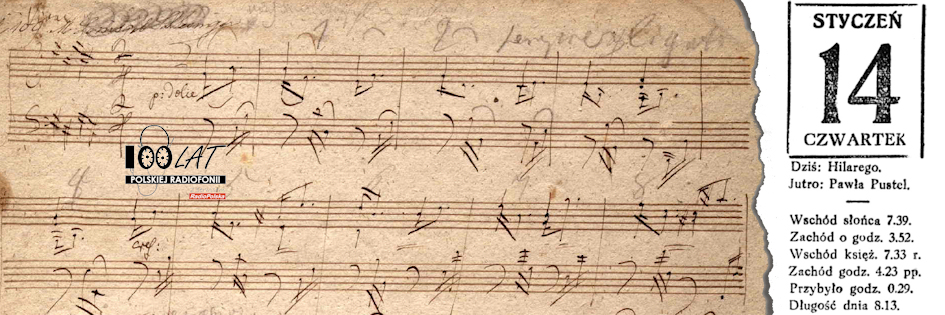 p: dolce
100 LAT
POLSKIEJ RADIOFONII
RadioPolska
STYCZEŃ
14
CZWARTEK
Dziś: Hilarego.
Jutro: Pawła Pustel.
Wschód słońca 7.39.
Zachód o godz. 3.52.
Wschód księż. 7.33 r.
Zachód godz. 4.23 pp.
Przybyło godz. 0.29.
Długość dnia 8.13.